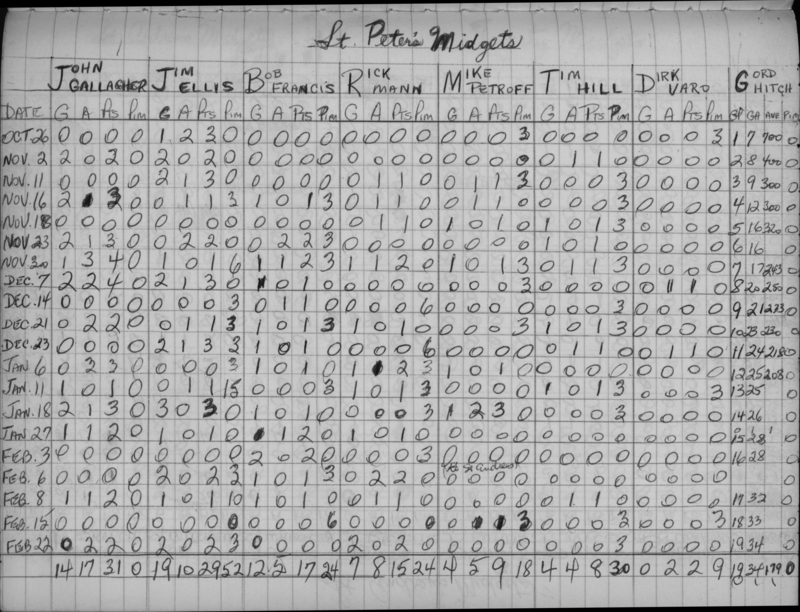 St. Peter's Midgets
JOHN GALLAGHER JIM ELLIS BOB FRANCIS RICK MANN MIKE PETROFF TIM HILL DIRK VARO GORD HITCH
DATE G A Pts Pim G A Pts Pim G A Pts Pim G A Pts Pim G A Pts Pim G A Pts Pim G A Pts Pim GP GA AVE Pim
OCT.26 0 0 0 0 1 2 3 0 0 0 0 0 0 0 0 0 0 0 0 3 0 0 0 0 0 0 0 3 1 7 700 0
NOV. 2 2 0 2 0 2 0 2 0 0 0 0 0 0 0 0 0 0 0 0 0 0 1 1 0 0 0 0 0 2 8 400 0
NOV. 11 0 0 0 0 2 1 3 0 0 0 0 0 0 1 1 0 0 1 1 3 0 0 0 3 0 0 0 0 3 9 300 0
NOV. 16 2 3 0 0 1 1 3 1 0 1 3 0 1 1 0 0 1 1 0 0 0 0 3 0 0 0 0 4 12 300 0
NOV. 18 0 0 0 0 0 0 0 0 0 0 0 0 0 1 1 0 1 0 1 0 1 0 1 3 0 0 0 0 5 16 320 0
NOV 23 2 1 3 0 0 2 2 0 0 2 2 3 0 0 0 0 0 0 0 0 1 0 1 0 0 0 0 0 6 16 0
NOV 30 1 3 4 0 1 0 1 6 1 1 2 3 1 1 2 0 1 0 1 3 0 1 1 3 0 0 0 0 7 17 243 0
DEC. 7 2 2 4 0 2 1 3 0 0 1 0 0 0 0 0 0 0 0 3 0 0 0 0 0 1 1 0 8 20 250 0
DEC. 14 0 0 0 0 0 0 0 3 0 1 1 0 0 0 0 6 0 0 0 0 0 0 0 3 0 0 0 0 9 21 233 0
DEC. 21 0 2 2 0 0 1 1 3 1 0 1 3 1 0 1 0 0 0 0 3 1 0 1 3 0 0 0 0 10 23 230 0
DEC. 23 0 0 0 0 2 1 3 3 1 0 1 0 0 0 0 6 0 0 0 0 0 1 1 0 0 1 1 0 11 24 218 0
JAN 6 0 3 3 0 0 0 0 3 1 0 1 0 1 2 3 1 0 1 0 0 0 0 0 0 0 0 0 12 25 208 0
JAN. 11 1 0 1 0 0 1 1 15 0 0 0 3 1 0 1 3 0 0 0 0 1 0 1 3 0 0 0 3 13 25 0
JAN. 18 2 1 3 0 3 0 3 0 1 0 1 0 0 0 0 3 1 2 3 0 0 0 0 3 0 0 0 0 14 26 0
JAN 27 1 1 2 0 1 0 1 0 1 2 0 1 0 1 0 0 0 0 0 0 0 0 0 0 0 0 0 15 28 0
FEB. 3 0 0 0 0 0 0 0 0 2 0 2 0 0 0 0 3 0 0 0 0 0 0 0 0 0 0 0 0 16 28 0
FEB. 6 0 0 0 0 2 0 2 3 1 0 1 3 0 2 2 0 0 0 0 0 0 0 0 0 0 0 0 0 0
FEB. 8 1 1 2 0 1 0 1 10 1 0 1 0 0 1 1 0 0 0 0 0 0 1 1 0 0 0 0 0 17 32 0
FEB. 15 0 0 0 0 0 0 0 0 0 0 0 6 0 0 0 0 0 1 1 3 0 0 0 3 0 0 0 3 18 33 0
FEB 22 0 2 2 0 2 0 2 3 0 0 0 0 2 0 2 0 0 0 0 0 0 0 0 3 0 0 0 0 19 34 0
14 17 31 0 19 10 29 52 12 5 17 24 7 8 15 24 4 5 9 18 4 4 8 30 0 2 2 9 19 34 179 0